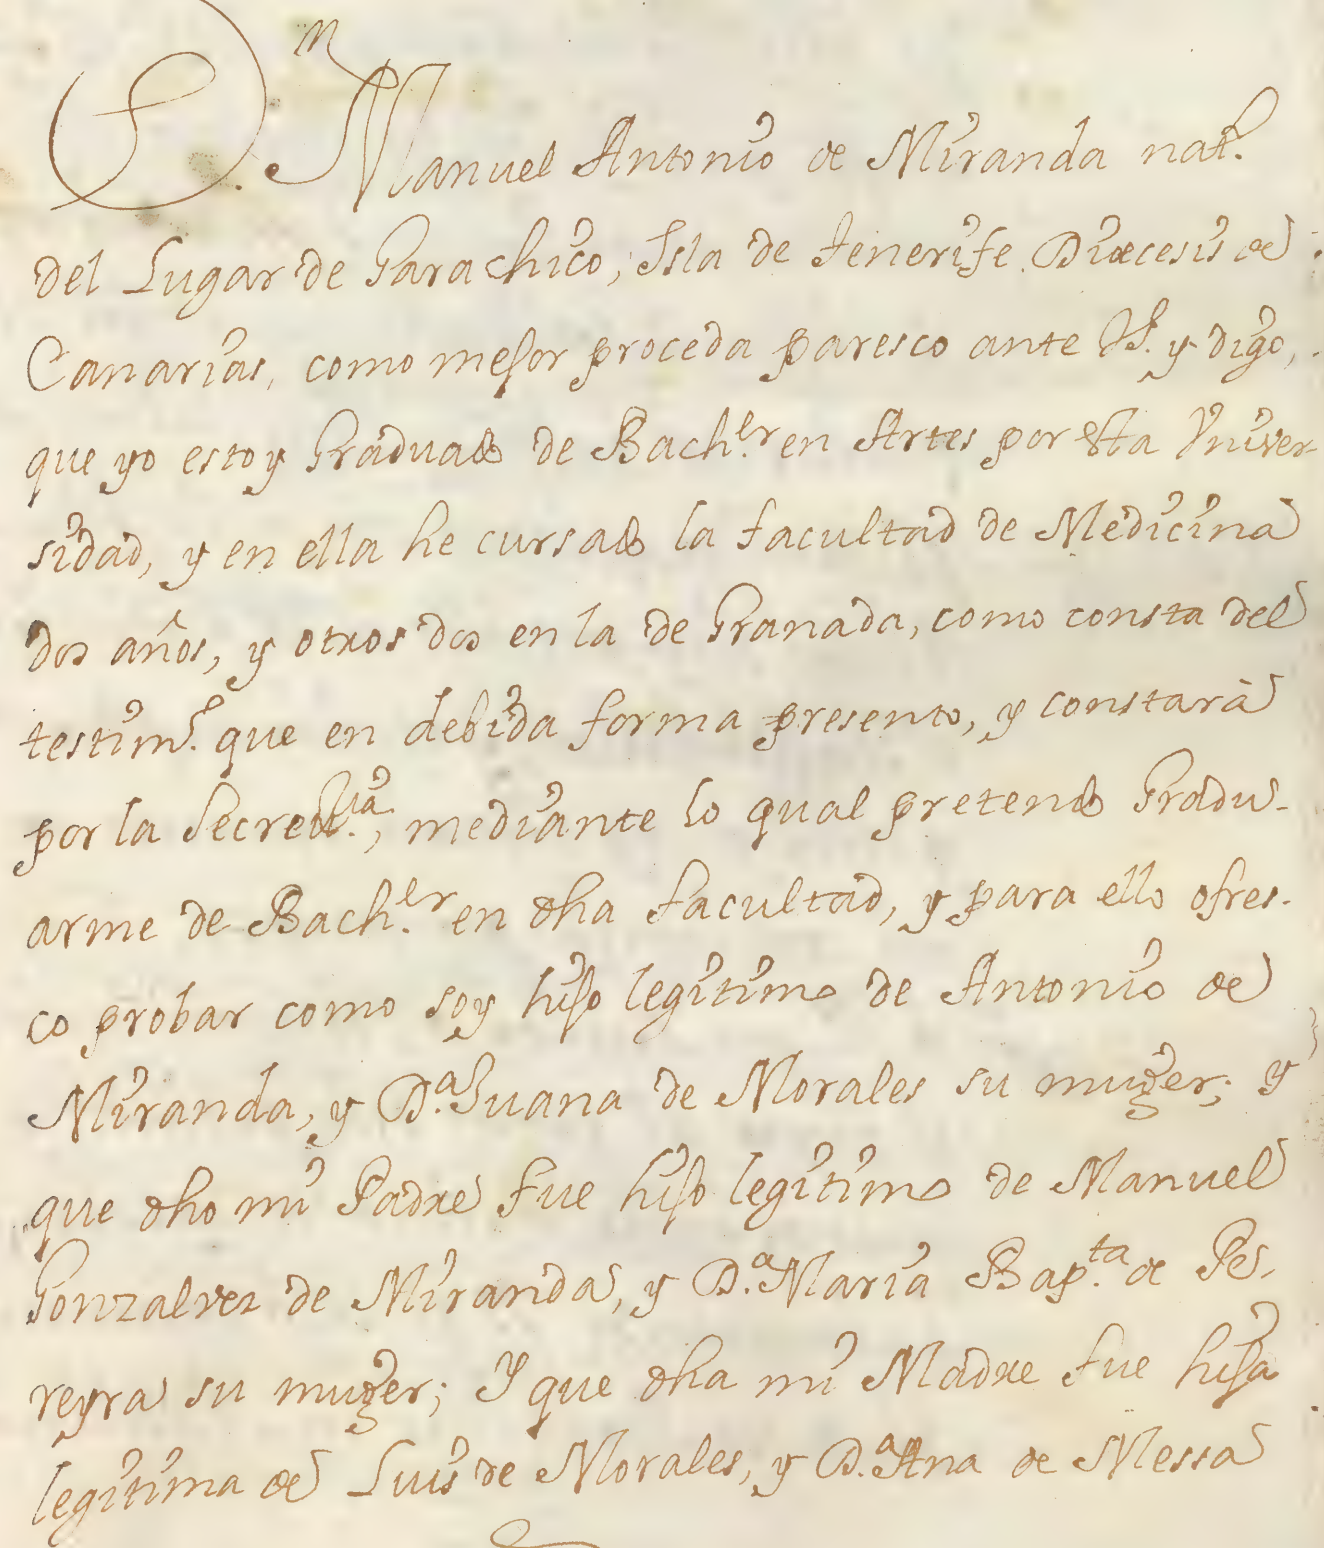 Manuel Antonio de Miranda nat.l
del Lugar de Garachico, Isla de Tenerife Diœcesis de
Canarias, como mejor proceda paresco ante VS. y digo,
que yo estoy Graduado de Bach.er en Artes por esta Vniver-
sidad, y en ella he cursado la facultad de Medicina
dos años, y otros dos en la de Granada, como consta del
testim.o que en debida forma presento, y constarà
por la Secret.ria, mediante lo qual pretendo Gradu-
arme de Bach.ler en dha facultad, y para ello ofres-
co probar como soy hijo legitimo de Antonio de
Miranda, y D.a Juana de Morales su muger; y
que dho mi Padre fue hijo legitimo de Manuel
Gonzalvez de Miranda, y D.a Maria Bap.ta de Pe-
reyra su muger; Y que dha mi Madre fue hija
legitima de Luis de Morales, y D.a Ana de Messa